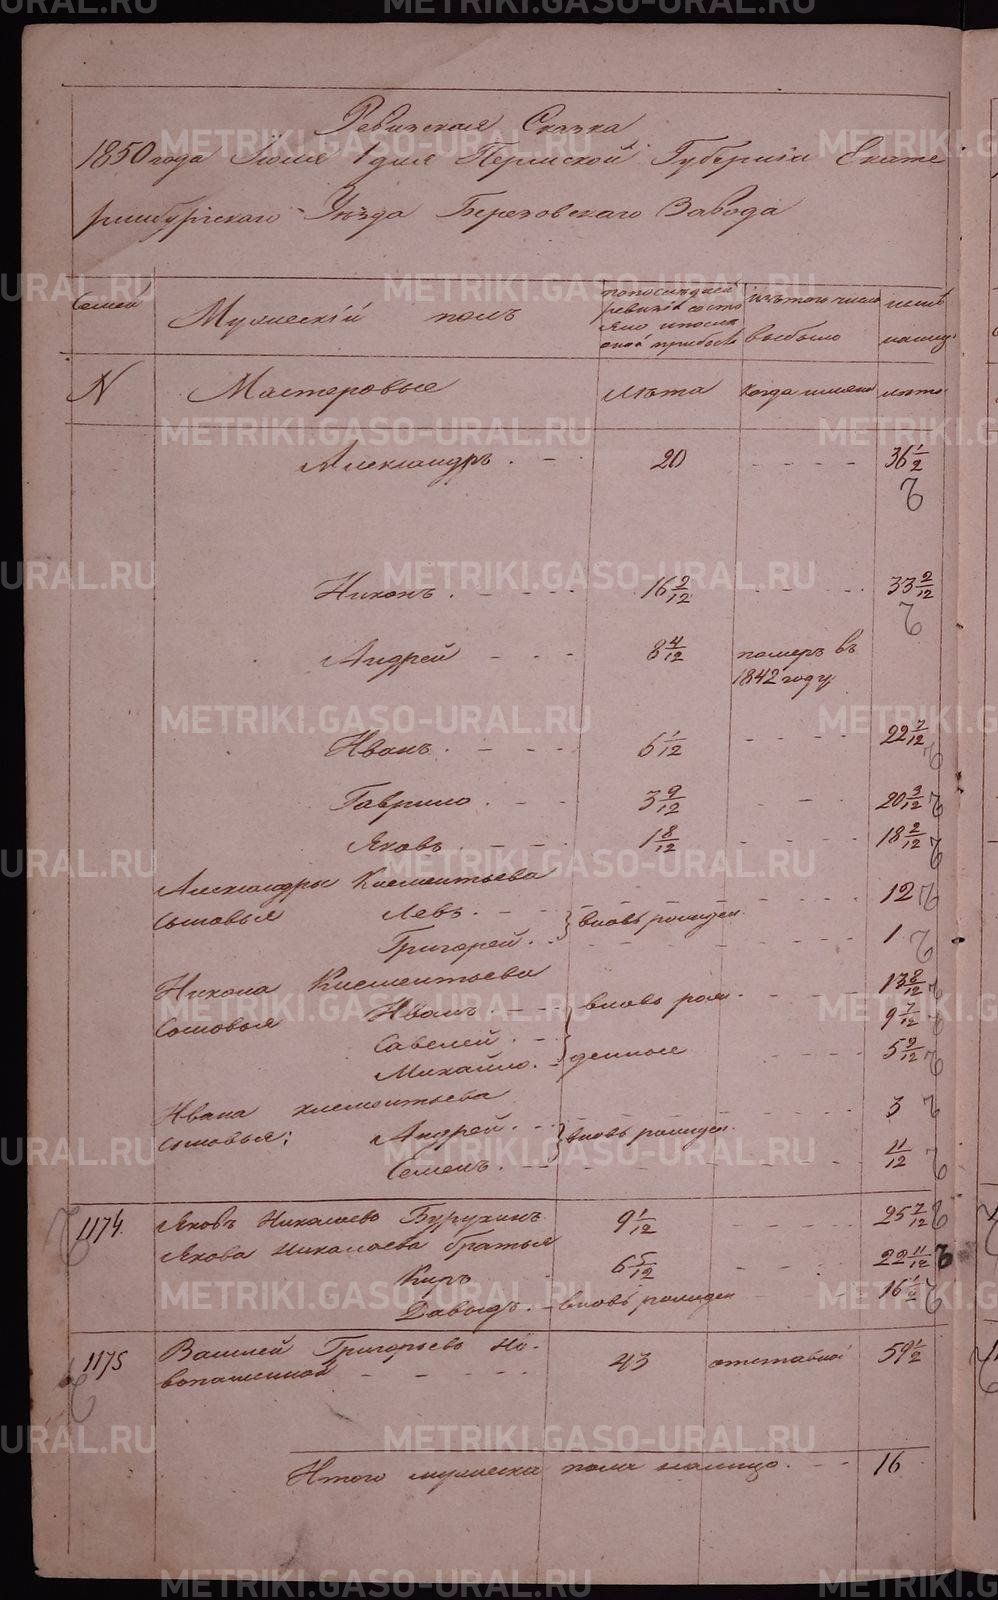 METRIKI.GASO-URAL.RU
Ревизская Сказка
1850 года Июля 1 дня Пермской Губернiи Екате
ринбургскаго Уѣзда Березовскаго Завода
Семей
Мужескiй полъ
по последней ревизiи состо яло и после оной прибыло
изъ того числа выбыло
ныне налицо
N
Мастеровые
лѣта
Когда имянно
лѣта
Александръ . - 20 - - - - 36 1/2
Никонъ . - - - - 16 2/12 - - - - 33 2/12
Андрей - - - 8 4/12 померъ въ
1842 году
Иванъ . - - - 6 1/12 - - - - 22 7/12
Гаврило . - - 3 9/12 - - 20 3/12
Яковъ . - - - 1 8/12 - - - 18 2/12
Александры Клементьева
сыновья Левъ . - - } вновь рожден. - - - 12
Григорей . - - - - - 1
Никона Клементьева
сыновья Иванъ . - - } вновь рож - - - - 13 8/12
Савелей . - 9 7/12
Михайло . - денные - - - - 5 9/12
Ивана клементьева
сыновья: Андрей . - - } вновь рожден. - - - - 3
Семенъ . - - - - - - 11/12
1174. Яковъ Николаевъ Бурухинъ 9 1/12 - - - - 25 7/12
Якова Николаева братья
Киръ 6 5/12 - - - - 22 11/12
Давыдъ . - вновь рожден - - - 16 1/2
1175 Василей Григорьевъ Но-
вопашенной - - - - - 43 отставной 59 1/2
Итого мужеска пола налицо . - - 16